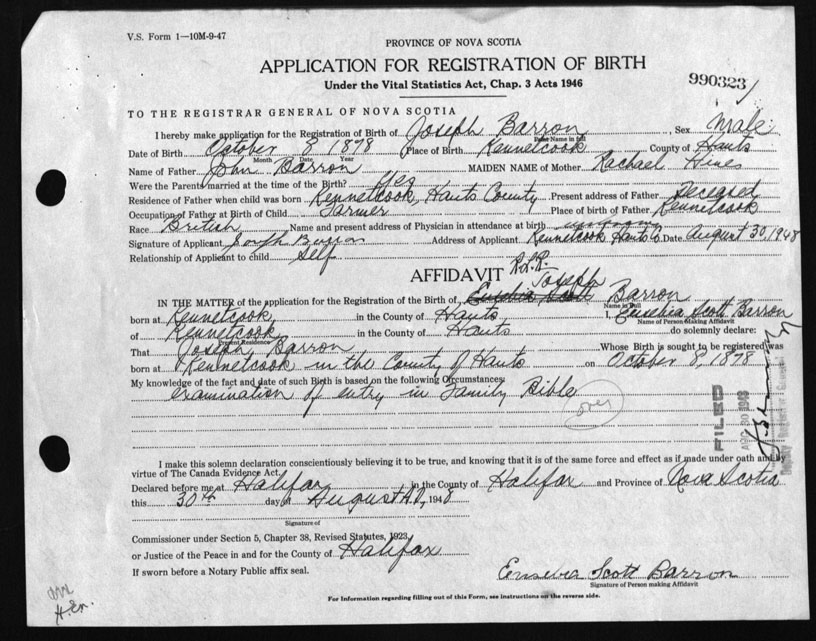 V.S. Form 1—10M-9-47
PROVINCE OF NOVA SCOTIA
APPLICATION FOR REGISTRATION OF BIRTH
Under the Vital Statistics Act, Chap. 3 Acts 1946
990323
TO THE REGISTRAR GENERAL OF NOVA SCOTIA
I hereby make application for the Registration of Birth of Joseph Barron, Sex Male
Name in full
Date of Birth October 8 1878 Place of Birth Kennetcook County of Hants
Month Date Year
Name of Father John Barron MAIDEN NAME of Mother Rachael Hines
Were the Parents married at the time of the Birth? Yes
Residence of Father when child was born Kennetcook, Hants County Present address of Father deceased
Occupation of Father at Birth of Child Farmer Place of birth of Father Kennetcook
Race British Name and present address of Physician in attendance at birth unknown
Signature of Applicant Joseph Barron Address of Applicant Kennetcook Hants Co Date August 30, 1948
Relationship of Applicant to child Self
AFFIDAVIT R.L.R.
Joseph
IN THE MATTER of the application for the Registration of the Birth of Eusebia Scott Barron
Name in Full
born at Kennetcook in the County of Hants I, Eusebia Scott Barron
Name of Person Making Affidavit
of Kennetcook in the County of Hants do solemnly declare:
Present Residence
That Joseph Barron Whose Birth is sought to be registered was
born at Kennetcook in the County of Hants on October 8, 1878
My knowledge of the fact and date of such Birth is based on the following Circumstances:
examination of entry in Family Bible
over
FILED
I make this solemn declaration conscientiously believing it to be true, and knowing that it is of the same force and effect as if made under oath and by
virtue of The Canada Evidence Act.
Declared before me at Halifax in the County of Halifax and Province of Nova Scotia
this 30th day of August A.D., 1948
Signature of
Commissioner under Section 5, Chapter 38, Revised Statutes, 1923,
or Justice of the Peace in and for the County of Halifax
If sworn before a Notary Public affix seal.
Eusebia Scott Barron
Signature of Person making Affidavit
For Information regarding filling out of this Form, see instructions on the reverse side.